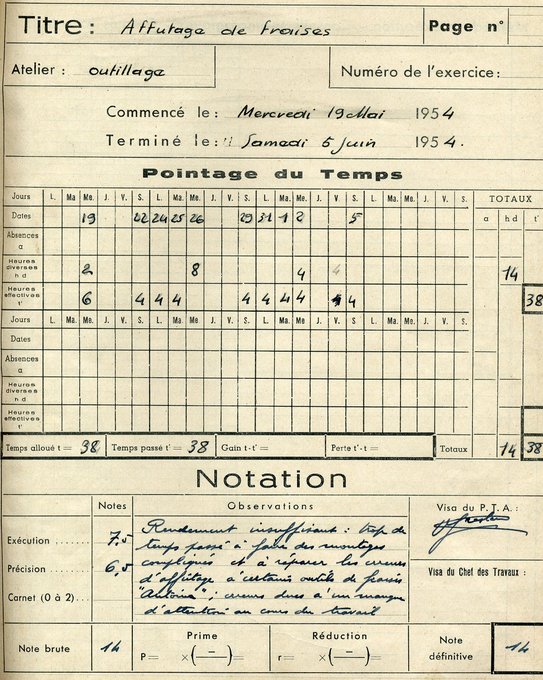 Titre : Affutage de fraises Page n°
Atelier : outillage Numéro de l'exercice :
Commencé le : Mercredi 19 Mai 1954
Terminé le : Samedi 5 Juin 1954.
Pointage du Temps
Jours L. Ma Me. J. V. S. L. Ma. Me. J. V. S. L. Ma. Me. J. V. S. L. Ma. Me. J. V. S. TOTAUX
Dates 19 22 24 25 26 29 31 1 2 5 a hd t'
Absences
a
Heures
diverses 2 8 4 4 14
h d
Heures
effectives 6 4 4 4 4 4 4 4 4 38
t'
Jours L. Ma. Me. J. V. S. L. Ma. Me. J. V. S. L. Ma. Me. J. V. S. L. Ma. Me. J. V. S.
Dates
Absences
a
Heures
diverses
h d
Heures
effectives
t'
Temps alloué t = 38 Temps passé t' = 38 Gain t-t' = Perte t'-t = Totaux 14 38
Notation
Notes Observations Visa du P.T.A. :
Exécution ...... 7,5 Rendement insuffisant : trop de
temps passé à faire des montages
Précision ...... 6,5 compliqués et à réparer les erreurs
d'affûtage à certains outils de Visa du Chef des Travaux :
Carnet (0 à 2)... "Antoine" ; erreurs dues à un manque
d'attention au cours du travail
Note brute 14 Prime P= ×(—) Réduction r= ×(—) Note définitive 14